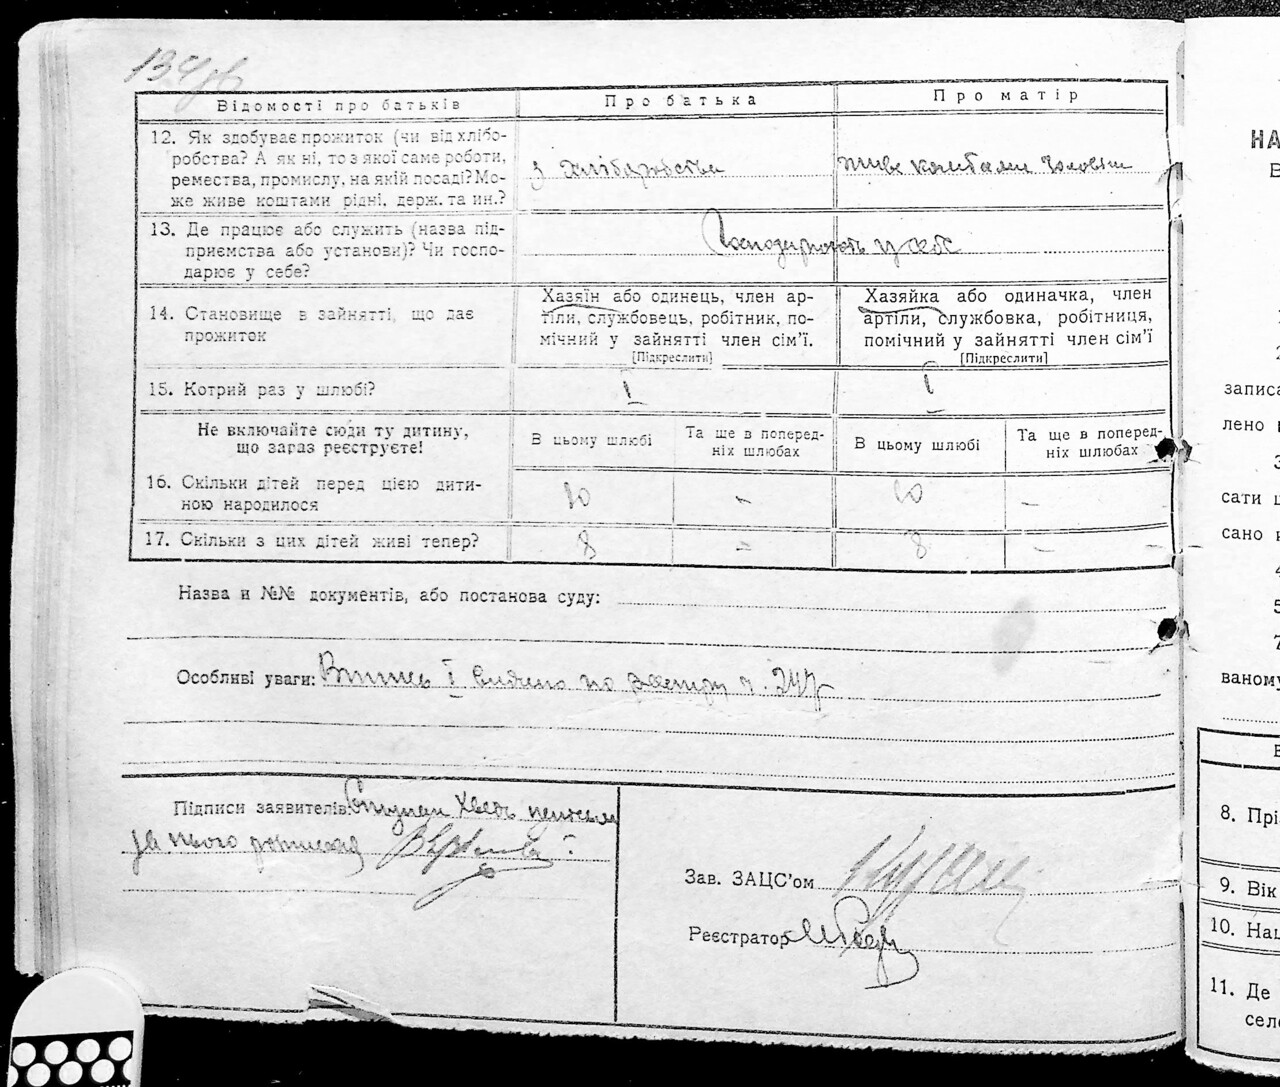 134 зв
Відомості про батьків
Про батька
Про матір
12. Як здобуває прожиток (чи від хлібо-
робства? А як ні, то з якої саме роботи,
ремества, промислу, на якій посаді? Мо-
же живе коштами рідні, держ. та ин.?
з хліборобства
живе коштами чоловіка
13. Де працює або служить (назва під-
приємства або установи)? Чи госпо-
дарює у себе?
Господарюють у себе
14. Становище в зайнятті, що дає
прожиток
Хазяїн або одинець, член ар-
тіли, службовець, робітник, по-
мічний у зайнятті член сім’ї.
[Підкреслити]
Хазяйка або одиначка, член
артіли, службовка, робітниця,
помічний у зайнятті член сім’ї
[Підкреслити]
15. Котрий раз у шлюбі?
I
I
Не включайте сюди ту дитину,
що зараз реєструєте!
В цьому шлюбі
Та ще в поперед-
ніх шлюбах
В цьому шлюбі
Та ще в поперед-
ніх шлюбах
16. Скільки дітей перед цією дити-
ною народилося
10
-
10
-
17. Скільки з цих дітей живі тепер?
8
-
8
-
Назва и №№ документів, або постанова суду:
Особливі уваги: Витяг I видано по реєстру ч. 247
Підписи заявителів:
за нього розписався
Зав. ЗАЦС’ом
Реєстратор
НА
В
записа
лено
сати
сано
4
5
7
ваному
8. Прі
9. Вік
10. Нац
11. Де
сел